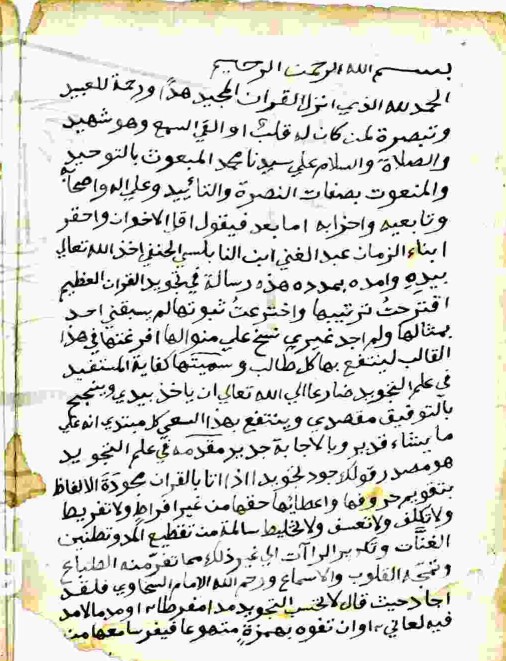 بسم الله الرحمن الرحيم
الحمد لله الذي انزل القرآن المجيد هدا ورحمة للعبيد
وتبصرة لمن كان له قلب او القي السمع وهو شهيد
والصلاة والسلام علي سيدنا محمد المبعوث بالتوحيد
والمنعوت بصفات النصرة والتاييد وعلي اله واصحابه
وتابعيه واحزابه اما بعد فيقول اقل الاخوان واحقر
ابناء الزمان عبد الغني ابن النابلسي الحنفي اخذ الله تعالي
بيده وامده بمدده هذه رسالة في تجويد القران العظيم
اقترحت ترتيبها واخترعت ثبوتها لم يسبقني احد
بمثالها ولم اجد غيري نسج علي منوالها افرغتها في هذا
القالب لينتفع بها كل طالب وسميتها كفاية المستفيد
في علم التجويد ضارعا الي الله تعالي ان ياخذ بيدي وينجح
بالتوفيق مقصدي وينتفع بهذا السعي كل مبتدي انه علي
ما يشاء قدير وبالاجابة جدير مقدمه في علم التجويد
هو مصدر قولك جود تجويدا اذا اتا بالقران مجودة الالفاظ
بتقويم حروفها واعطائها حقها من غير افراط ولا تفريط
ولا تكلف ولا تعسف ولا تخليط سالمة من تقطيع المد وتطنين
الغنات وتكرير الراآت الي غير ذلك مما تنفر منه الطباع
وتمجه القلوب والاسماع ورحم الله الامام السخاوي فلقد
اجاد حيث قال لا تحسب التجويد مدا مفرطا او مد ما لا مد
فيه لعاني او ان تفوه بهمزة متهوعا فيفر سامعها من